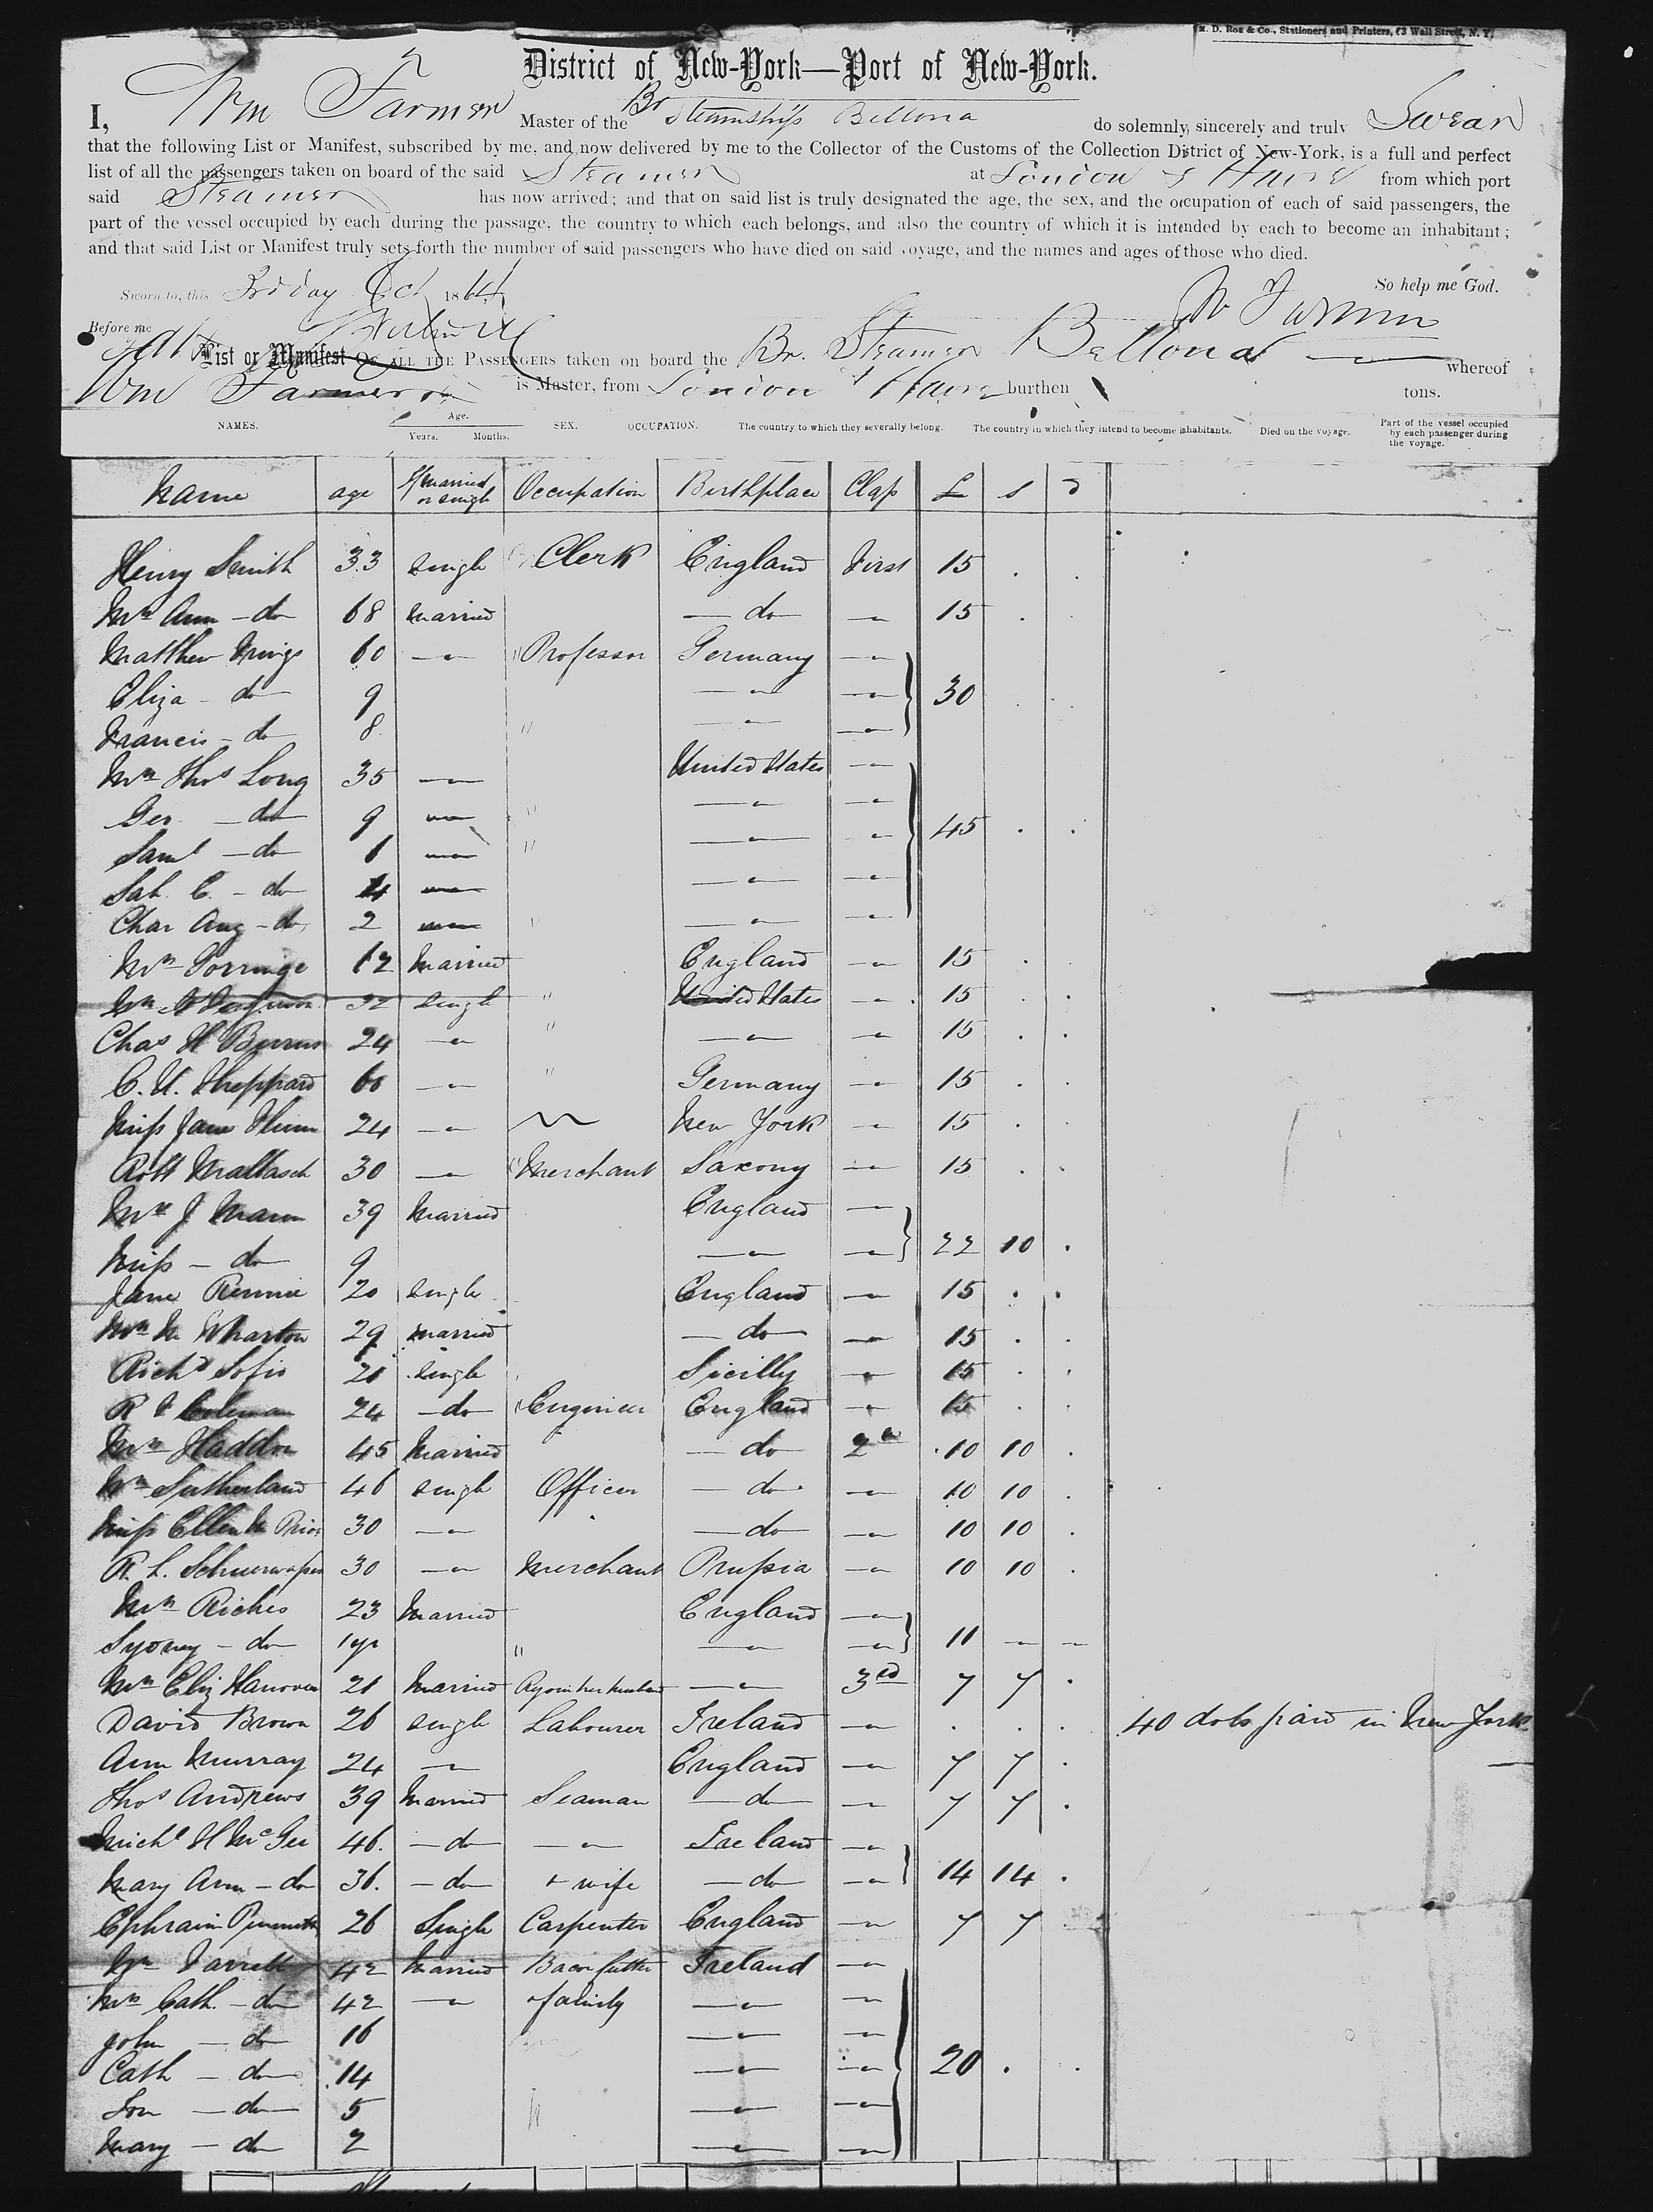 M. D. Roe & Co., Stationers and Printers, 73 Wall Street, N. Y.
District of New-York—Port of New-York.
I, Wm Farmer Master of the Br Steamship Bellona do solemnly, sincerely and truly Swear
that the following List or Manifest, subscribed by me, and now delivered by me to the Collector of the Customs of the Collection District of New-York, is a full and perfect
list of all the passengers taken on board of the said Steamer at London & Havre from which port
said Steamer has now arrived; and that on said list is truly designated the age, the sex, and the occupation of each of said passengers, the
part of the vessel occupied by each during the passage, the country to which each belongs, and also the country of which it is intended by each to become an inhabitant;
and that said List or Manifest truly sets forth the number of said passengers who have died on said voyage, and the names and ages of those who died.
Sworn to, this 3rd day Oct 1864 So help me God.
Before me W Farmer
List or Manifest OF ALL THE PASSENGERS taken on board the Br. Steamer Bellona whereof
Wm Farmer is Master, from London & Havre burthen tons.
NAMES. Age. Years. Months. SEX. OCCUPATION. The country to which they severally belong. The country in which they intend to become inhabitants. Died on the voyage. Part of the vessel occupied by each passenger during the voyage.
Name age If married or single Occupation Birthplace Class £ s d
Henry Smith 33 single Clerk England First 15 . .
Mrs Ann - do 68 married — do — " 15 .
Matthew 60 — " — Professor Germany — " —
Eliza - do 9 — " — — " — 30
Francis - do 8 " — " — — " —
Mrs Thos Long 35 — " — United States — " —
Geo - do 9 — " — " — " — — " — 45 . .
Saml - do 6 — " — " — " — — " —
Sah. C. - do 4 — " — — " — — " —
Char Aug - do 2 — " — " — " — — " —
Mrs Gorringe 62 married England — " — 15 .
32 single " United States — " — 15 . .
Chas H 24 — " — " — " — — " — 15 . .
C. U. Sheppard 60 — " — " Germany — " — 15 . .
Miss Jane 24 — " — New York — " — 15 . .
Robt Maltasch 30 — " — Merchant Saxony — " — 15 . .
Mrs J Mann 39 married England — " —
Miss - do 9 — " — — " — 22 10 .
Jane Rennie 20 single England — " — 15 . .
Mrs M Wharton 29 married — do — — " — 15 . .
Richd Sofio 21 single Sicilly — " — 15 . .
R F Coleman 24 - do - Engineer England — " — 15 . .
Mrs Haddon 45 married — do 2d 10 10 .
Wm Sutherland 46 single Officer — do — — " — 10 10 .
Miss Ellen M Prior 30 — " — — do — — " — 10 10 .
R. L. 30 — " — Merchant Prussia — " — 10 10 .
Mrs Riches 23 married England — " —
Sydney - do 1 yr " — " — — " — 11 — —
Mrs Eliz Hanover 21 married husband — " — 3rd 7 7 .
David Brown 26 single Labourer Ireland — " — . . . 40 dols paid in New York
Ann Murray 24 — " — England — " — 7 7 .
Thos Andrews 39 married Seaman — do — — " — 7 7 .
Michl H McGee 46. - do — " — Ireland — " —
Mary Ann - do 36. - do + wife — do — — " — 14 14 .
Ephraim 26 Single Carpenter England — " — 7 7
Wm Farrell 42 married Bacon cutter Ireland — " —
Mrs Cath. - do 42 — " — family — " — — " —
John - do 16 — " — — " —
Cath - do 14 — " — — " — 20 . .
Son - do 5 — " — — " —
Mary - do 2 — " — — " —